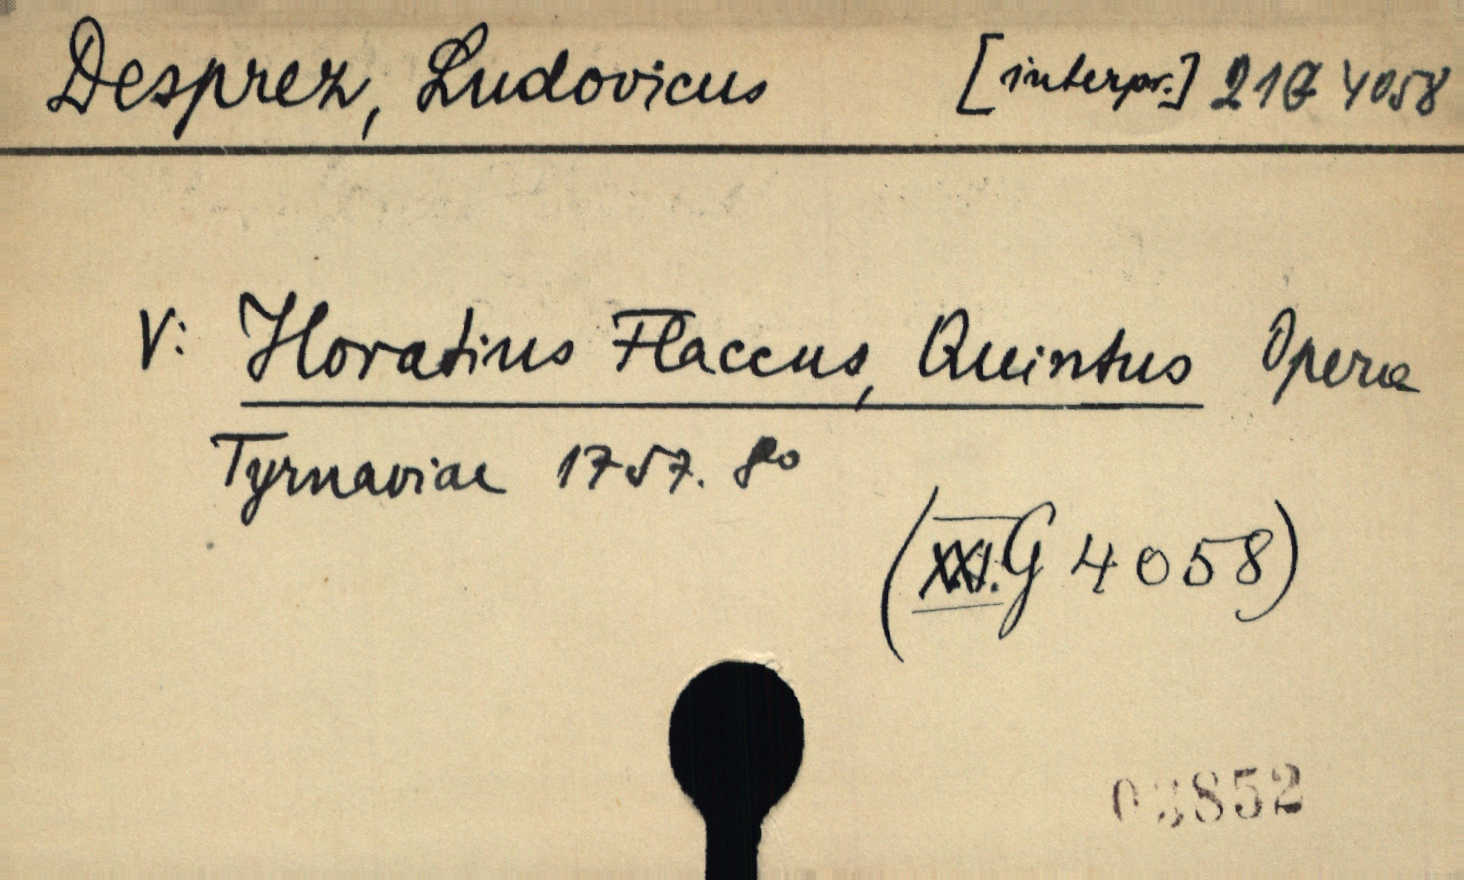 Desprez, Ludovicus [interpr.] 21G 4058
V: Horatius Flaccus, Quintus Opera
Tyrnaviae 1757. 8o
(XXI.G 4058)